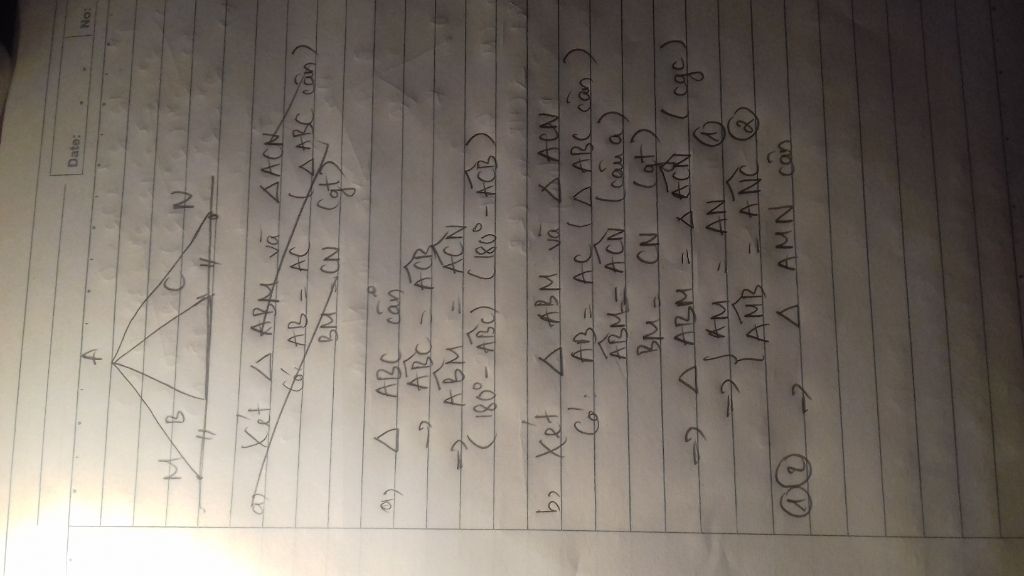 Date: No:
A
M B C N
a) Xét △ ABM và △ACN
Có: AB = AC (△ ABC cân)
BM = CN (gt)
a, △ ABC cân
→ ABC = ACB
=> ABM = ACN
(180° - ABC) (180° - ACB)
b, Xét △ ABM và △ ACN
Có: AB = AC (△ ABC cân)
ABM = ACN (câu a)
BM = CN (gt)
=> △ ABM = △ ACN (cgc)
=> { AM = AN ①
AMB = ANC ②
① ② → △ AMN cân